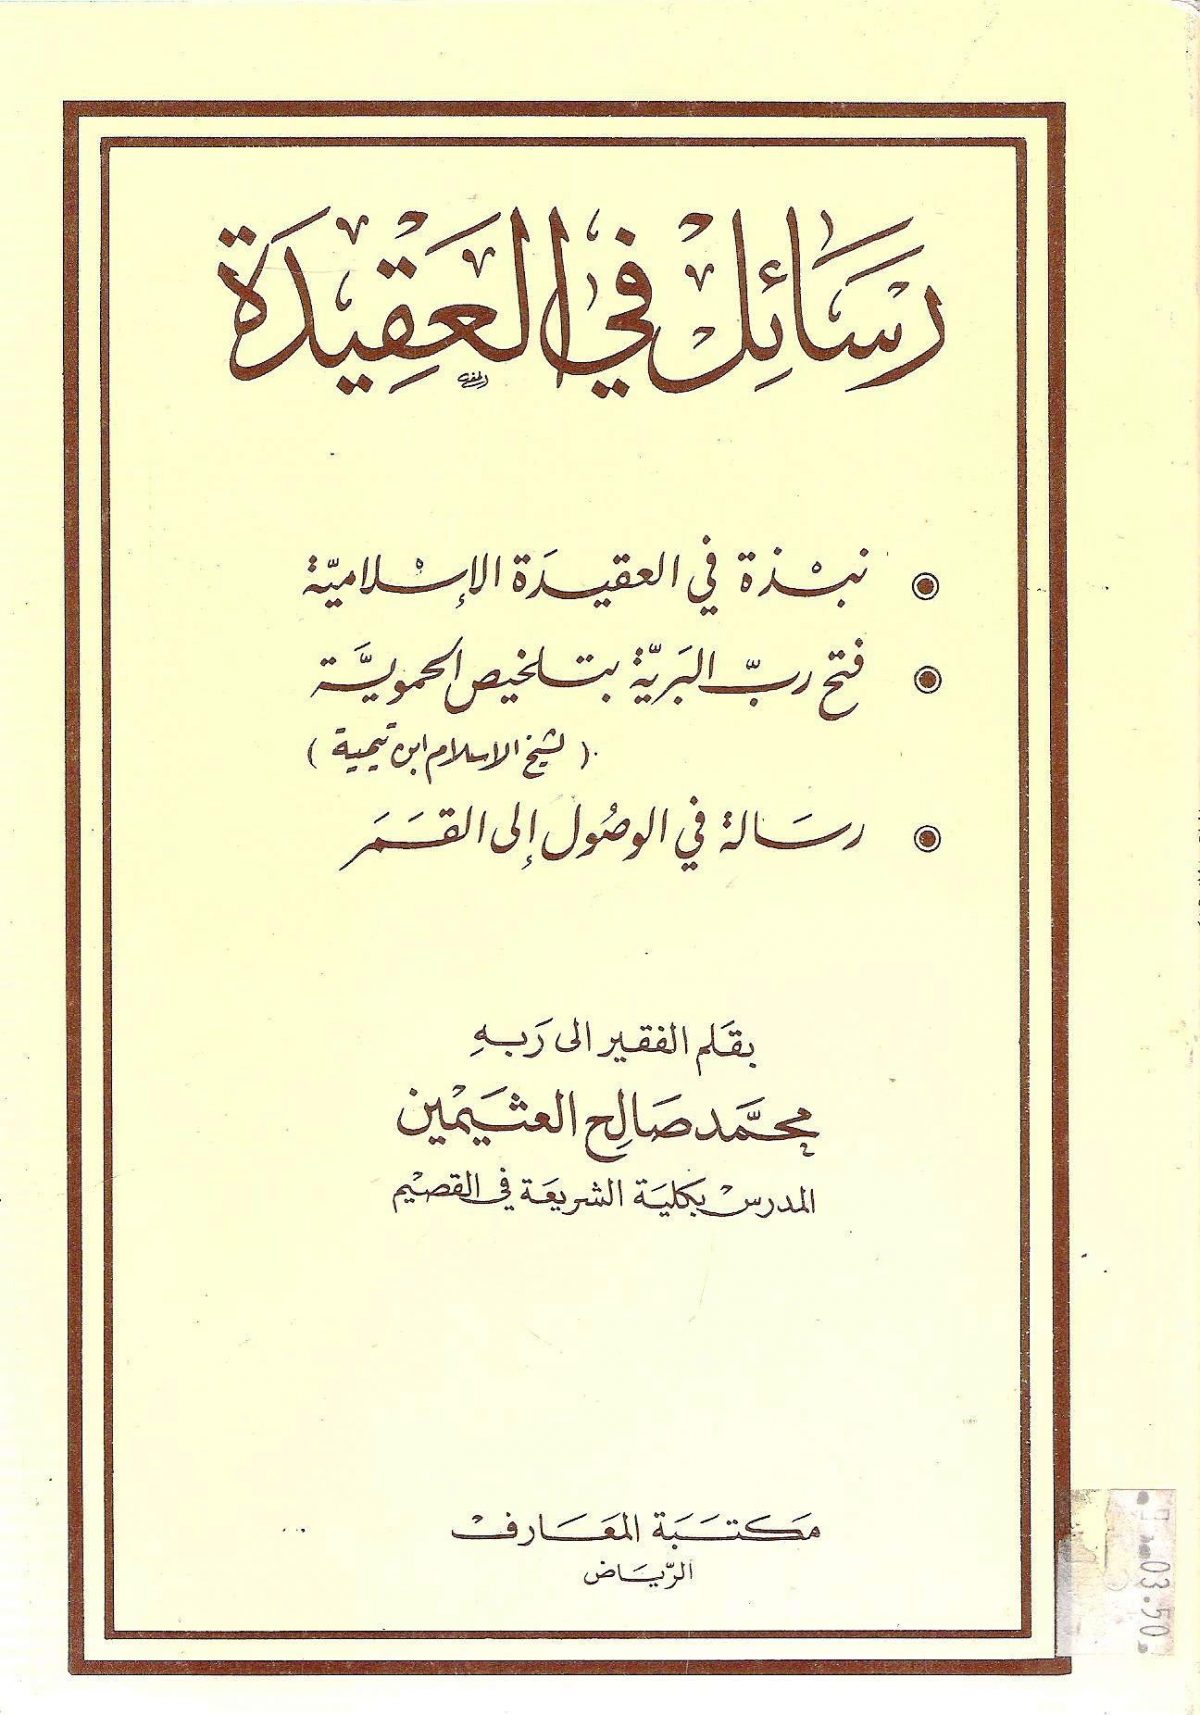 رسَائِل في العَقِيدَة
نبْذة في العقيدَة الإسْلاميّة
فتح ربّ البَريّة بتلخيص الحمويَّة
( لشيخ الاسلام ابن تيمية )
رسَالة في الوصُول إلى القَمَر
بقَلم الفقير الى رَبهِ
محمَّد صَالِح العثيَمْين
المدرسْ بكلية الشريعَة في القصيْم
مَكتبَة المعَارفْ
الريَّاض
03.50